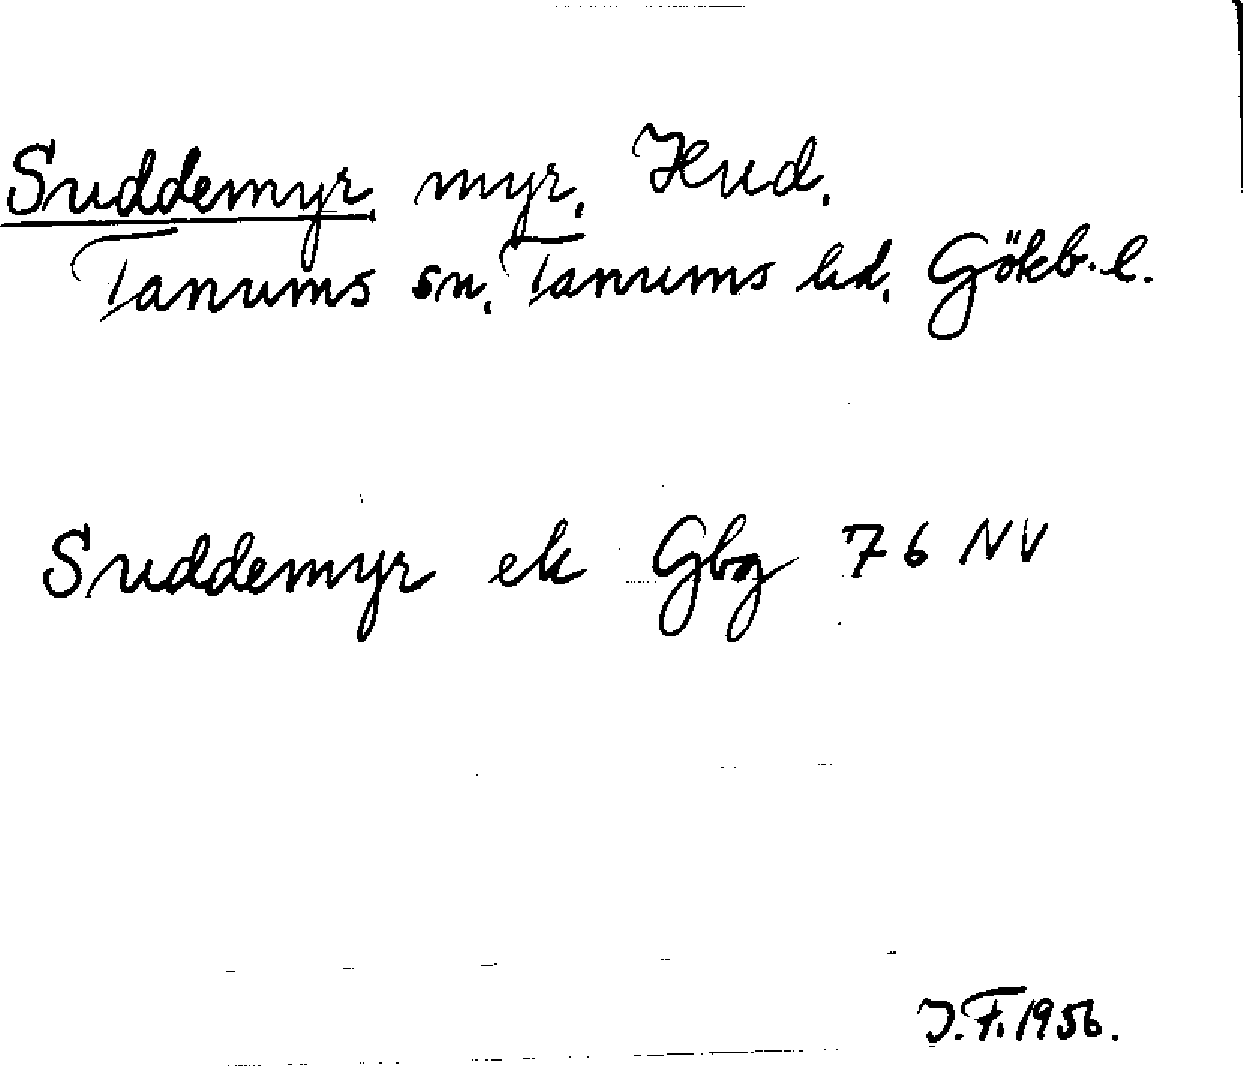 Suddemyr, myr, Hud,
Tanums sn, Tanums hd, Gökb. l.
Suddemyr ek Gbg 76 NV
J.F. 1956.